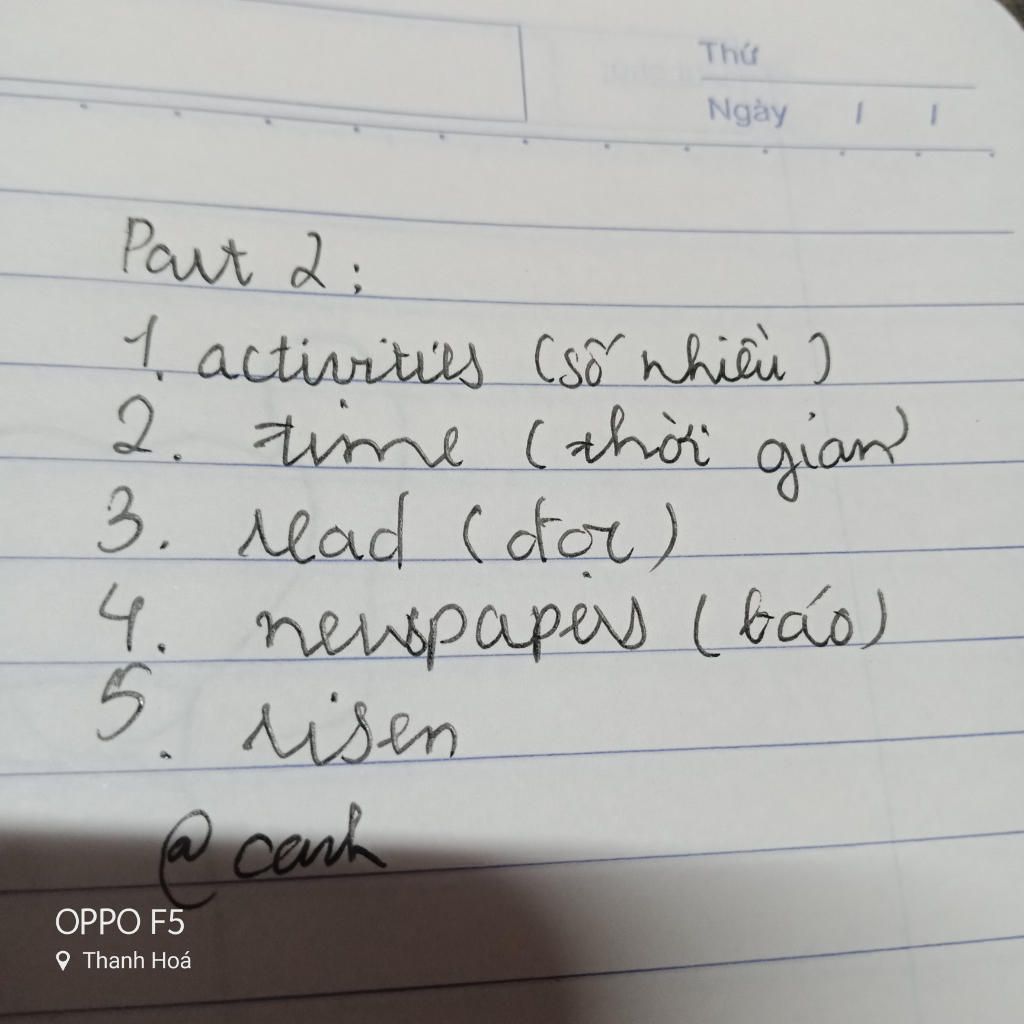 Thứ
Ngày / /
Part 2:
1. activities (số nhiều)
2. time (thời gian)
3. read (đọc)
4. newspapers (báo)
5. risen
@canh
OPPO F5
Thanh Hoá